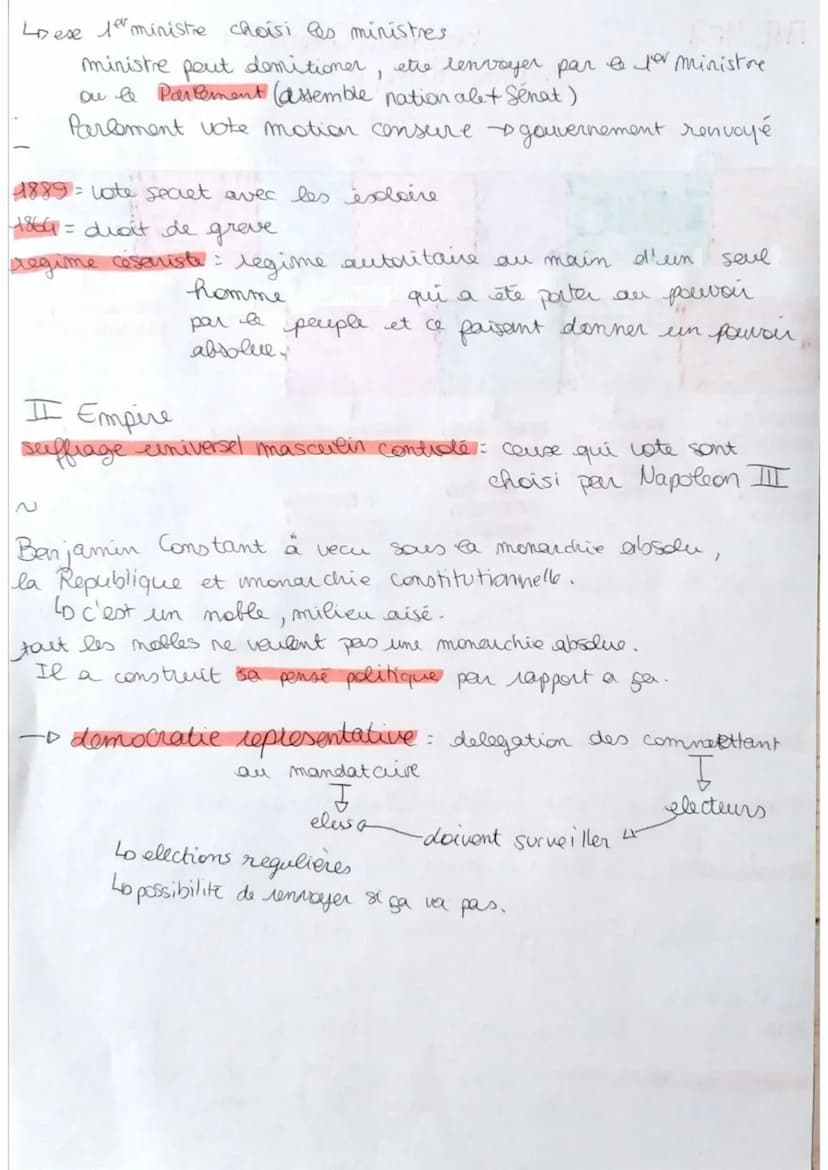 ↳ exe 1er ministre choisi les ministres
ministre peut domitioner, etre renvoyer par le 1er ministre
ou le Parlement (assemble nationale + Sénat)
Parlement vote motion censure → gouvernement renvoyé
1889 = vote secret avec les isoloire
1864 = droit de greve
regime césariste : regime autoritaire au main d'un seul
homme qui a été porter au pouvoir
par le peuple et ce faisant donner un pouvoir
absolue.
II Empire
suffrage universel masculin controlé = ceux qui vote sont
choisi par Napoleon III
~
Benjamin Constant à vecu sous la monarchie absolu,
la Republique et monarchie constitutionnelle.
↳ c'est un noble, milieu aisé.
tout les nobles ne veulent pas une monarchie absolue.
Il a construit sa pensé politique par rapport a ça.
→ democratie representative : delegation des commettant
au mandataire
↓ ↓
elus ← doivent surveiller ← electeurs
↳ elections regulières
↳ possibilité de renvoyer si ça va pas.